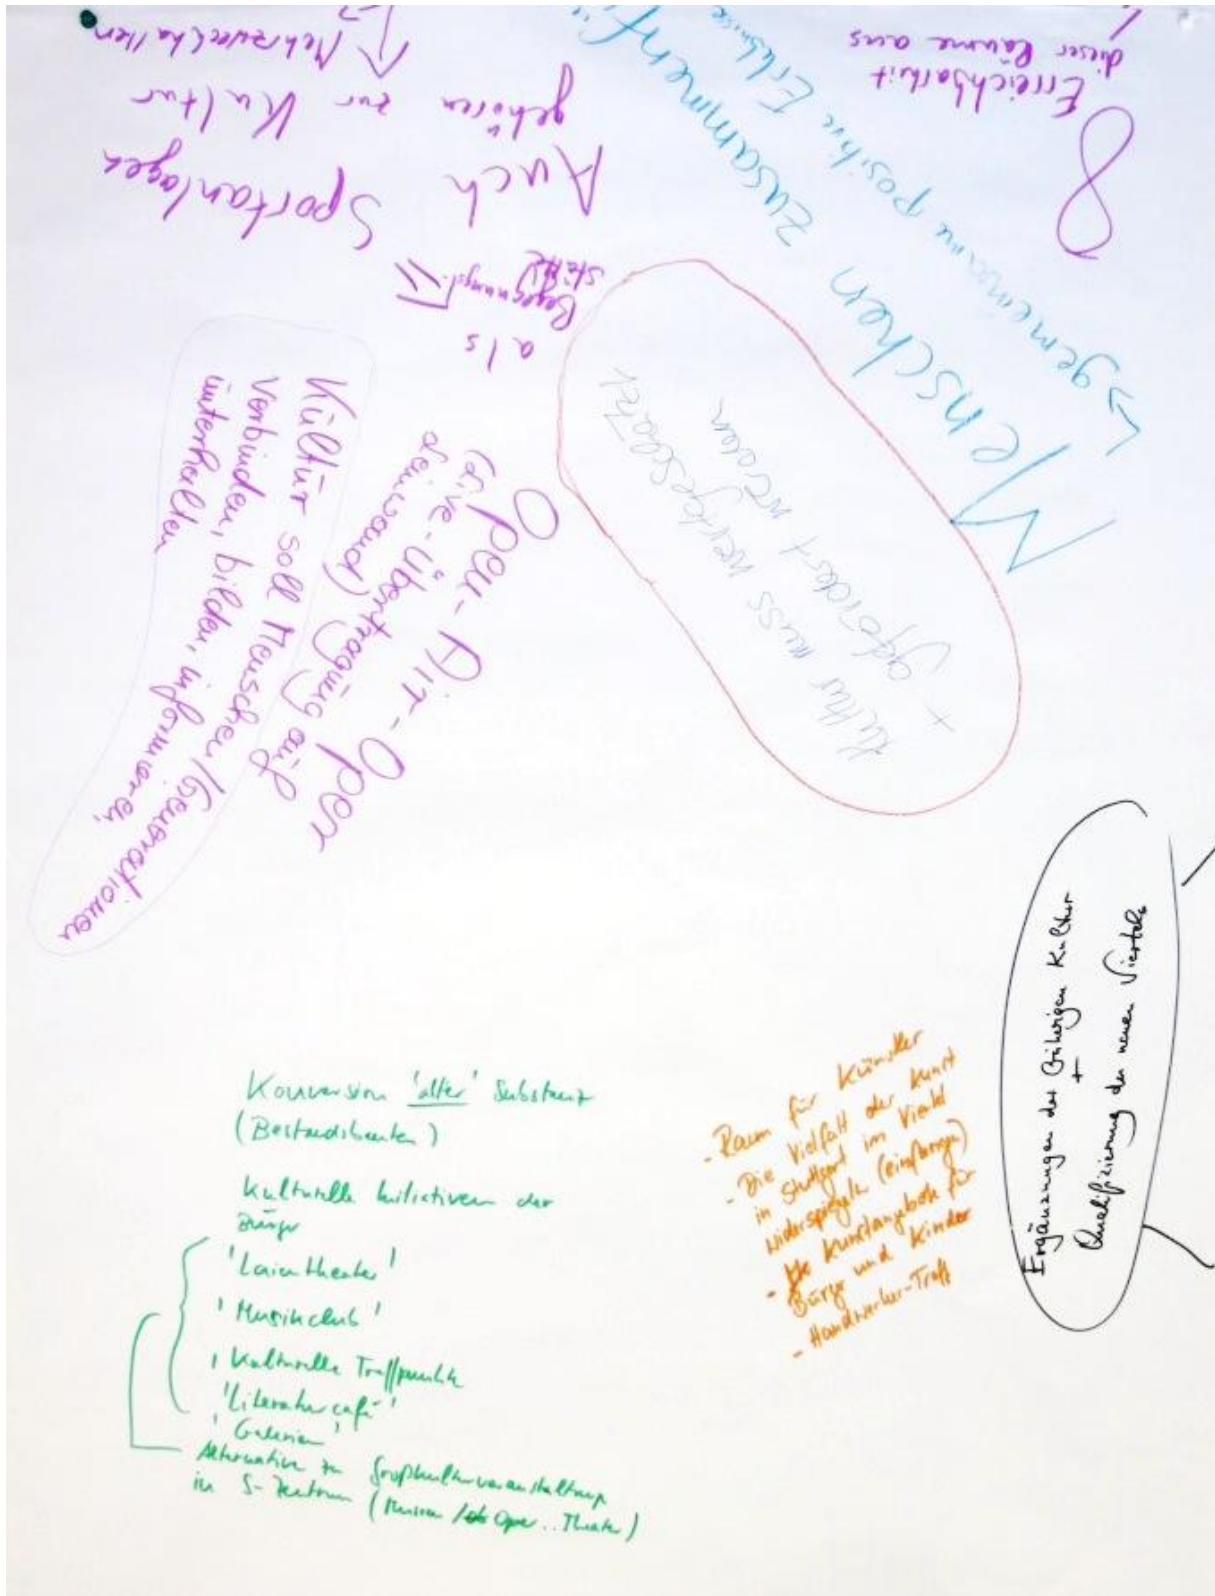 8
Erreichbarkeit
dieser Räume aus
Menschen zusammenfü
→ gemeinsame positive Erlebnisse
Auch Sportanlagen
gehören zur Kultur
↑ Mehrzweckhallen
als
Begegnungs-
stätte
Kultur muss wertgeschätzt
+ gefördert werden
Open-Air-Oper
(Live-Übertragung auf
Leinwand)
Kultur soll Menschen/Generationen
verbinden, bilden, informieren,
unterhalten
Ergänzungen der bisherigen Kultur
+
Qualifizierung der neuen Viertels
- Raum für Künstler
- Die Vielfalt der Kunst
in Stuttgart im Viertel
widerspiegeln (einfangen)
- Kunstangebote für
Bürger und Kinder
- Handwerker-Treff
Konversion 'alter' Substanz
(Bestandsbauten)
Kulturelle Initiativen der
Bürger
'Laientheater'
'Musikclub'
' Kulturelle Treffpunkte
'Literaturcafé'
'Galerien'
Alternative zu Großkulturveranstaltung
in S-Zentrum (Museen / Oper .. Theater)